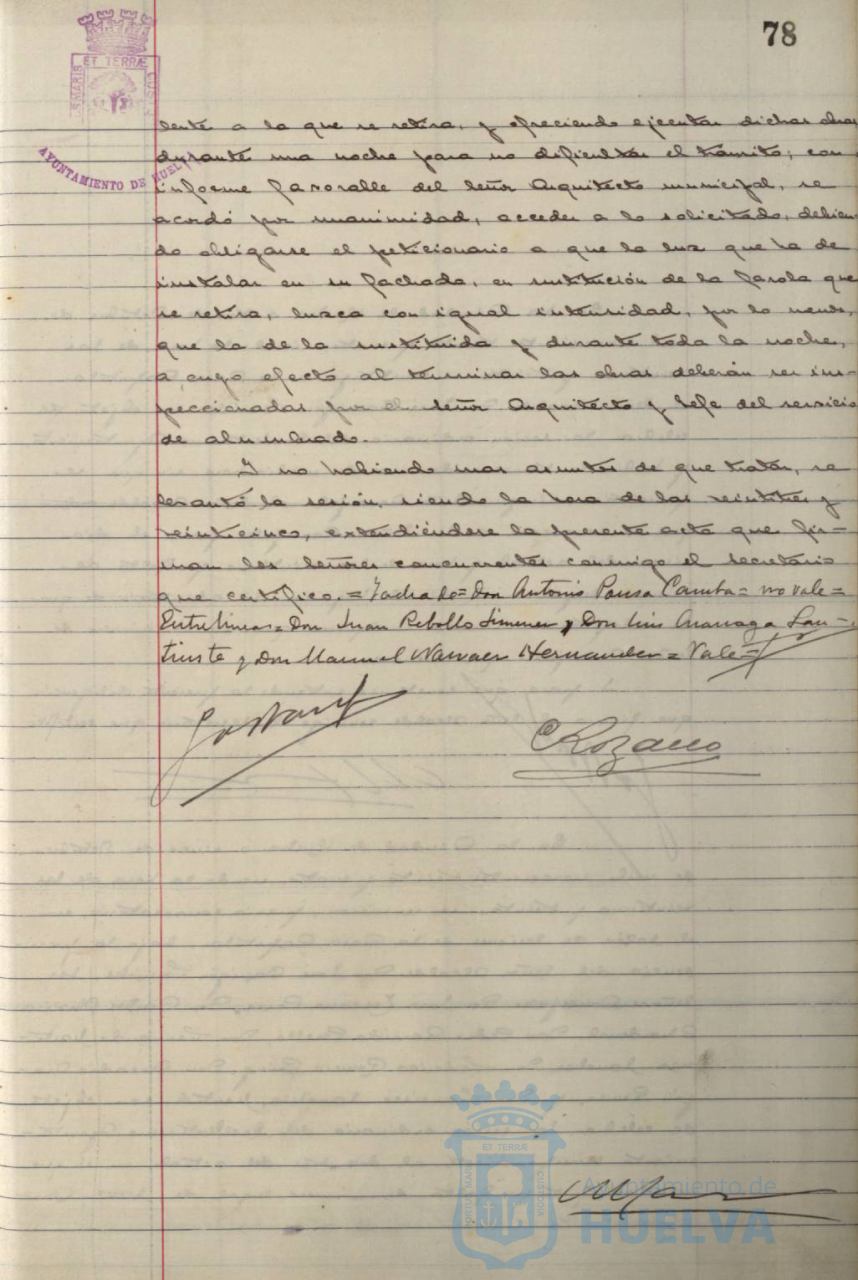 78
ET TERRÆ
AYUNTAMIENTO DE HUELVA
lente a la que se retira, y ofreciendo ejecutar dichas obras
durante una noche para no dificultar el tránsito; con
informe favorable del Señor Arquitecto municipal, se
acordó por unanimidad, acceder a lo solicitado, debien-
do obligarse el peticionario a que la luz que ha de
instalar en su fachada, en sustitución de la farola que
se retira, luzca con igual intensidad, por lo menos,
que la de la sustituida y durante toda la noche,
a cuyo efecto al terminar las obras deberán ser ins-
peccionadas por el Señor Arquitecto y Jefe del servicio
de alumbrado.
Y no habiendo mas asuntos de que tratar, se
levantó la sesión, siendo la hora de las veintitres y
veinticinco, extendiéndose la presente acta que fir-
man los Señores concurrentes conmigo el Secretario
que certifico.= Tachado= Don Antonio Pousa Camba= no vale=
Entrelineas= Don Juan Rebollo Jimenez y Don Luis
y Don Manuel Narvaez Hernandez= Vale=
CRozano
ET TERRÆ
Ayuntamiento de
HUELVA